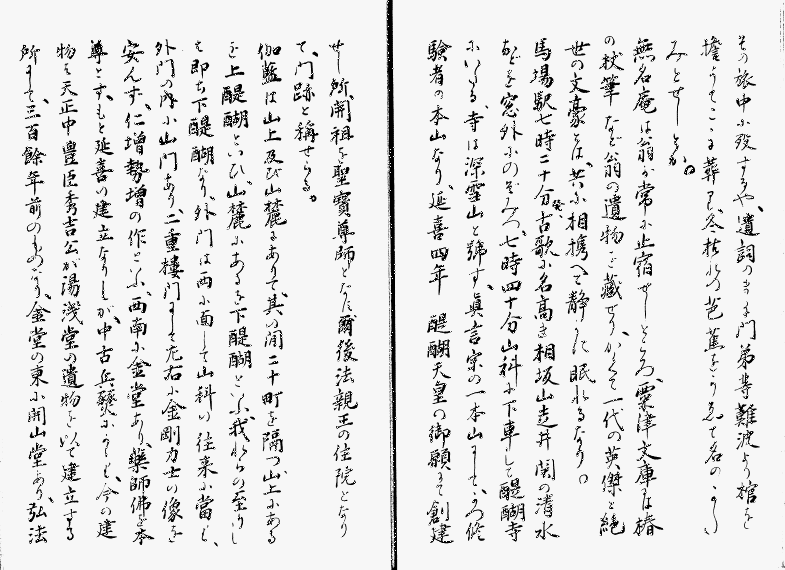 その旅中に歿するや、遺詞のまゝ門弟等難波より棺を
擔うてこゝに葬る、冬枯れの芭蕉をうゑて名のかた
みとせしとか。
無名庵は翁が常に止宿せしところ、粟津文庫は椿
の杖筆など翁の遺物を藏せり、かくて一代の英傑と絶
世の文豪とは、共に相携へて靜かに眠れるなり。
馬場駅七時二十分發、古歌に名高き相坂山走井関の清水
などを窓外にのぞみつ、七時四十分山科に下車して醍醐寺
にいたる、寺は深雪山と號す、眞言宗の一本山にして、修
驗者の本山なり、延喜四年 醍醐天皇の御願にて創建
せし所、開祖を聖寶尊師となす、爾後法親王の住院となり
て、門跡と稱せらる。
伽藍は山上及び山麓にありて、其の間二十町を隔つ、山上にある
を上醍醐といひ、山麓にあるを下醍醐といふ、我れらの至りし
は即ち下醍醐なり、外門は西に面して山科の往来に當り、
外門の内に山門あり、二重樓門にして左右に金剛力士の像を
安んず、仁増勢増の作といふ、西南に金堂あり、藥師佛を本
尊とす、もと延喜の建立なりしが、中古兵燹にかゝり、今の建
物は天正中豊臣秀吉公が湯浅堂の遺物を以て建立する
所にて、三百餘年前のものなり、金堂の東に開山堂あり、弘法